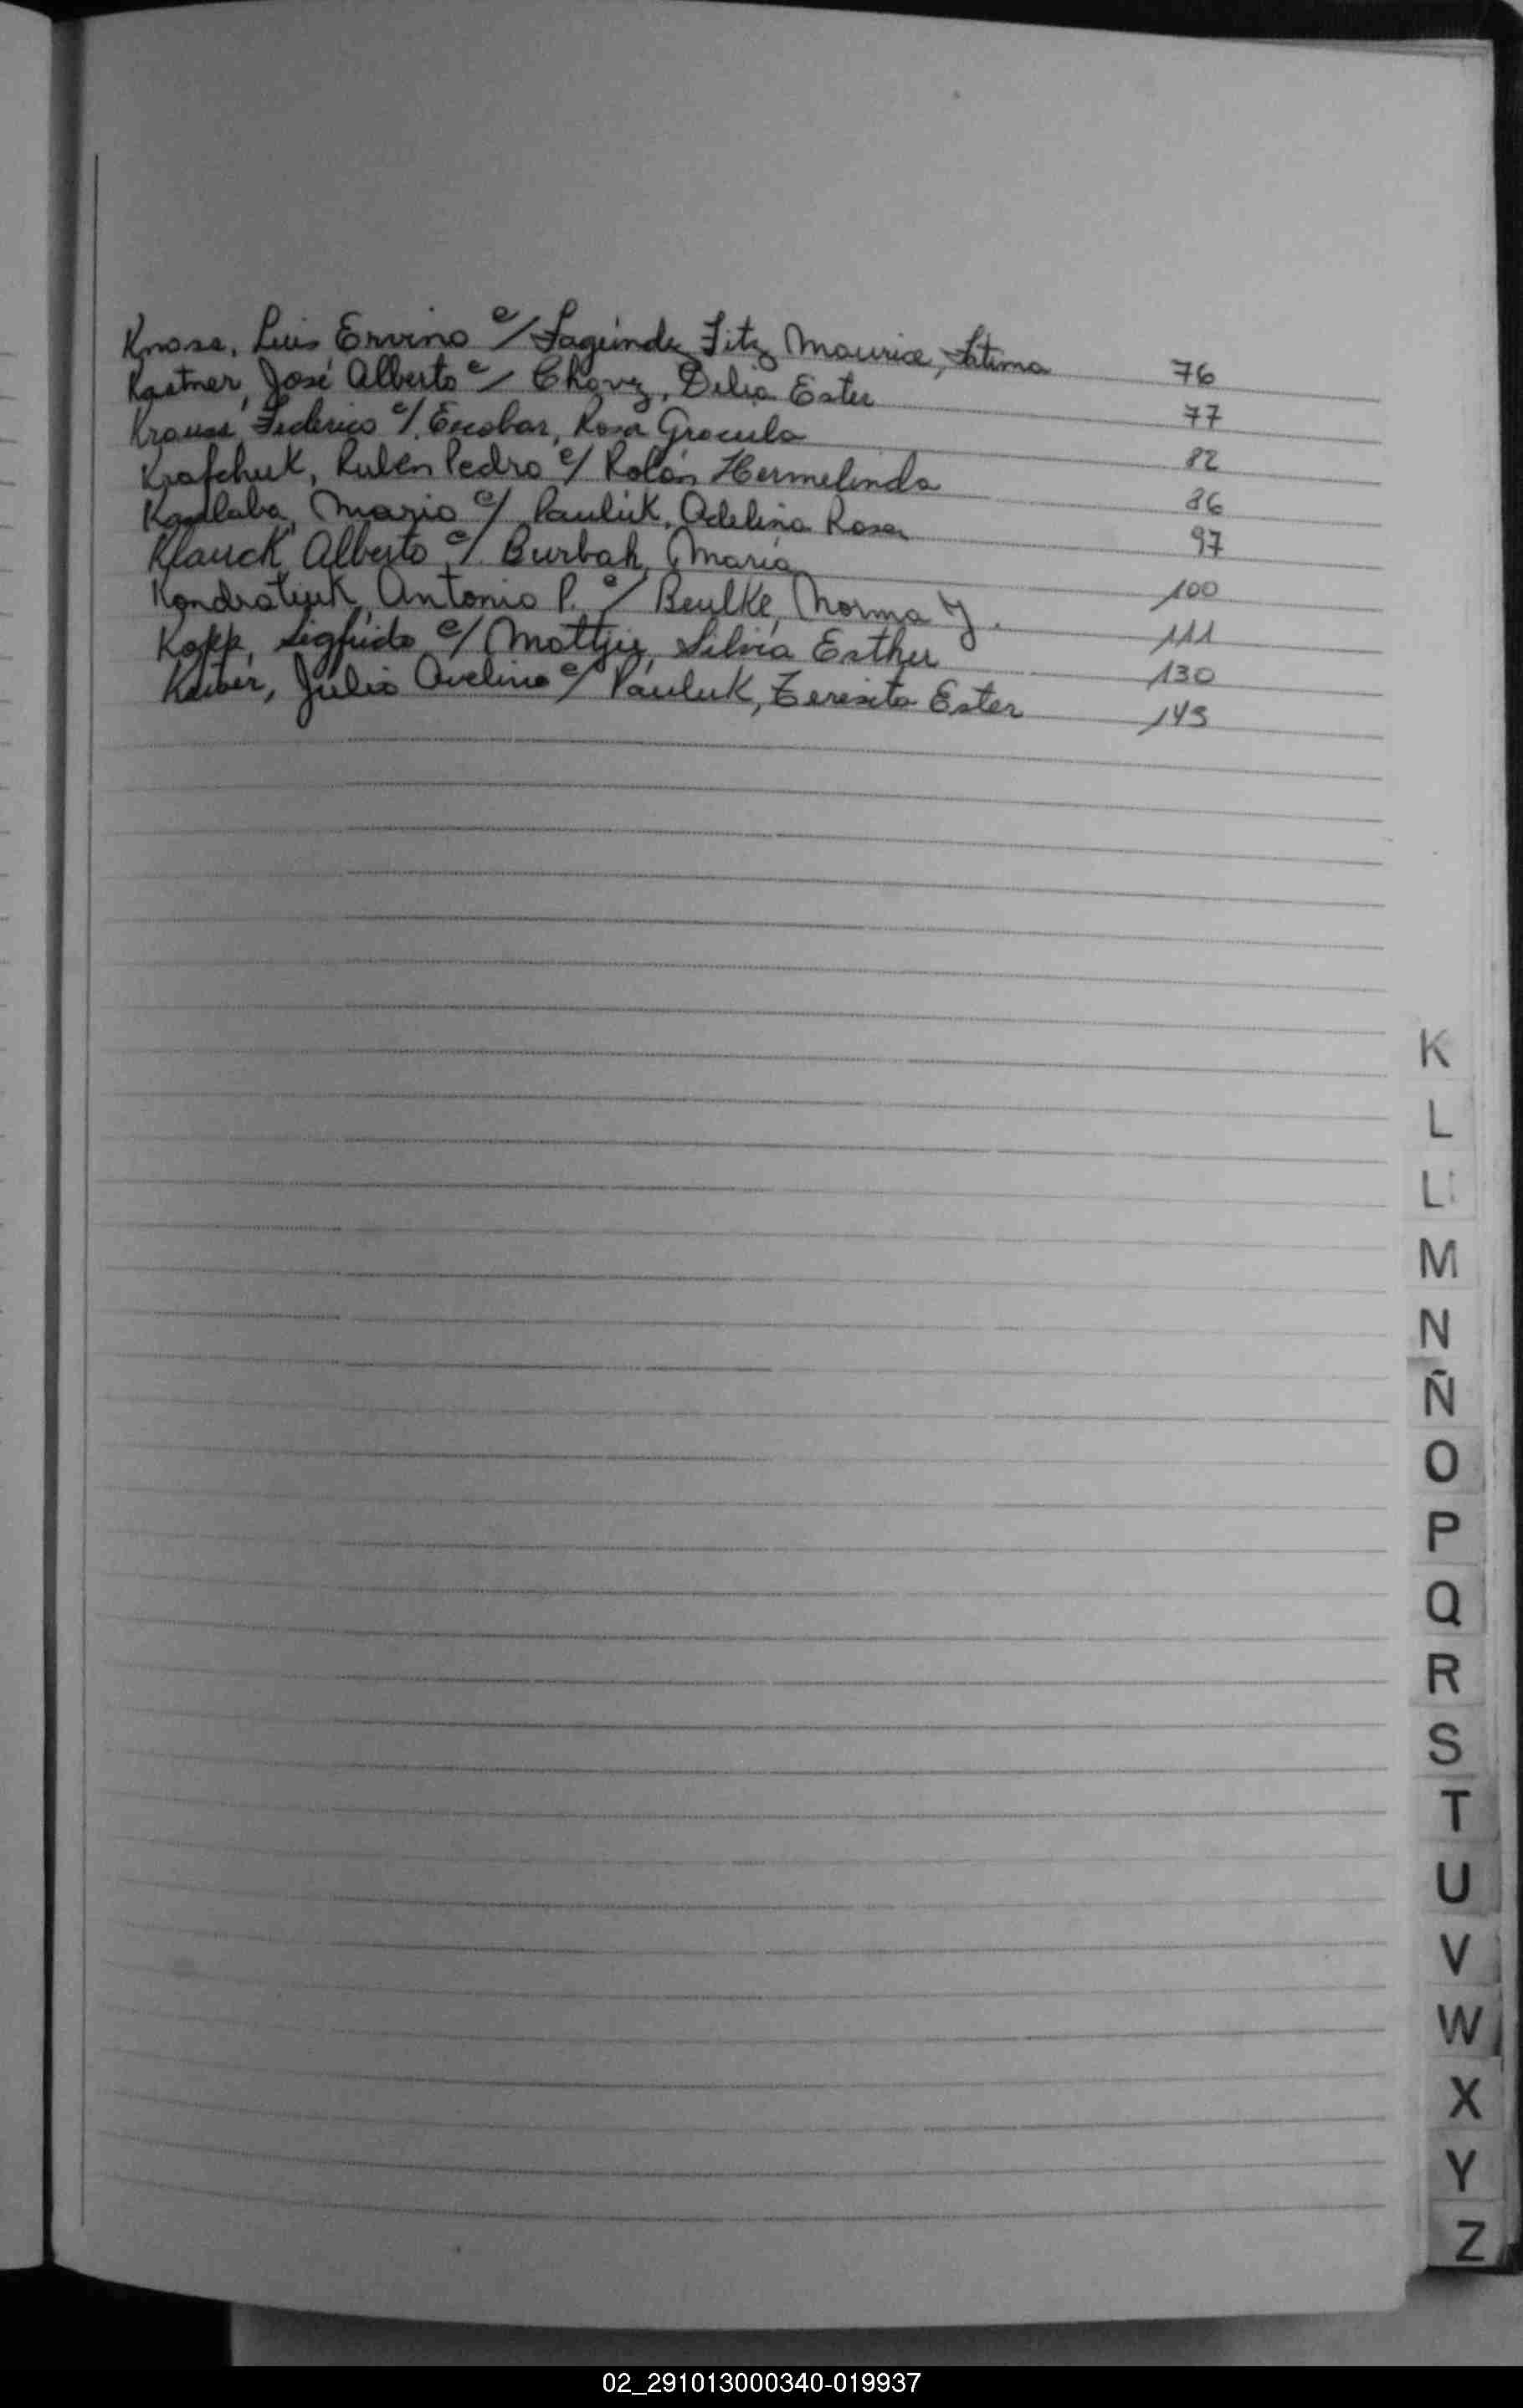 Knosa, Luis Ervino c/ Fagúndez Fitz Maurice, Fatima 76
Kastner, José Alberto c/ Chavez, Delia Ester 77
Krause, Federico c/. Escobar, Rosa Graciela 82
Krafchuk, Rubén Pedro c/ Rolón Hermelinda 86
Mario c/ Pauluk, Adelina Rosa 97
Klauck, Alberto c/. Burbah, María 100
Kondratiuk, Antonio P. c/ Beulke, Norma Y. 111
Kopp, Sigfrido c/ Mattjie, Silvia Esther 130
Julio Avelino c/ Pauluk, Teresita Ester 145
K
L
LL
M
N
Ñ
O
P
Q
R
S
T
U
V
W
X
Y
Z
02_291013000340-019937